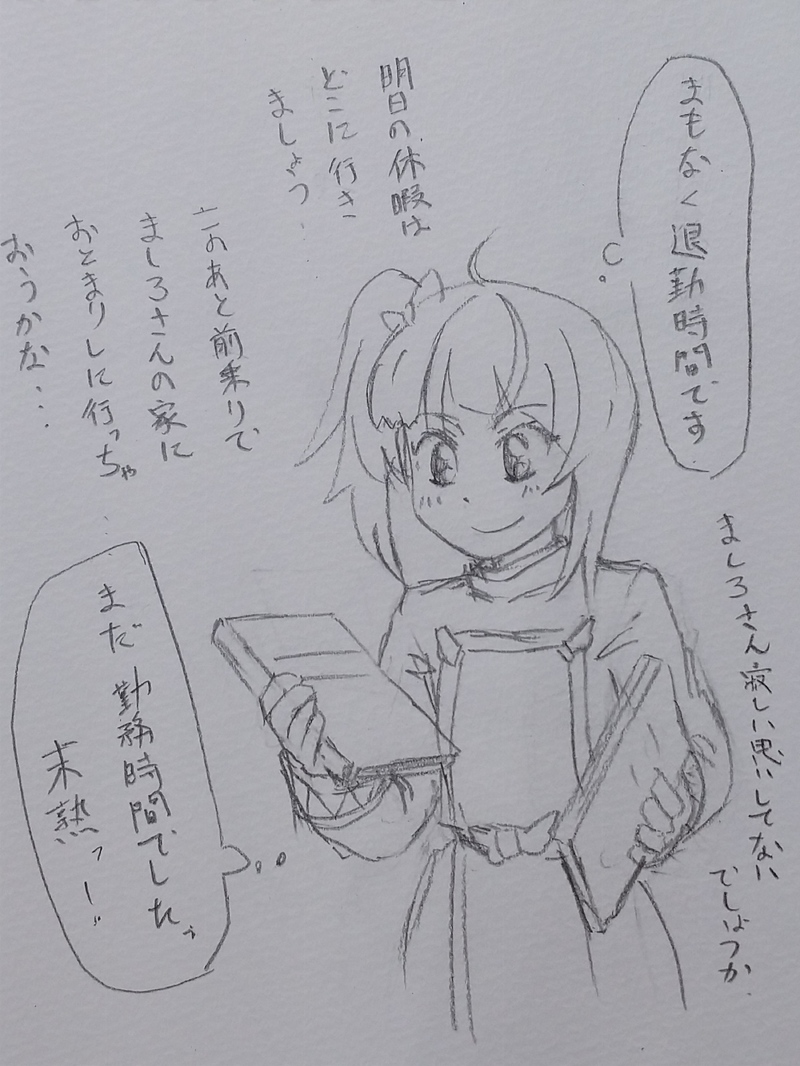 まもなく退勤時間です
明日の休暇は
どこに行き
ましょう・
このあと前乗りで
ましろさんの家に
おとまりしに行っちゃ
おうかな・・・
ましろさん寂しい思いしてない
でしょうか
まだ勤務時間でした。
未熟っー!!